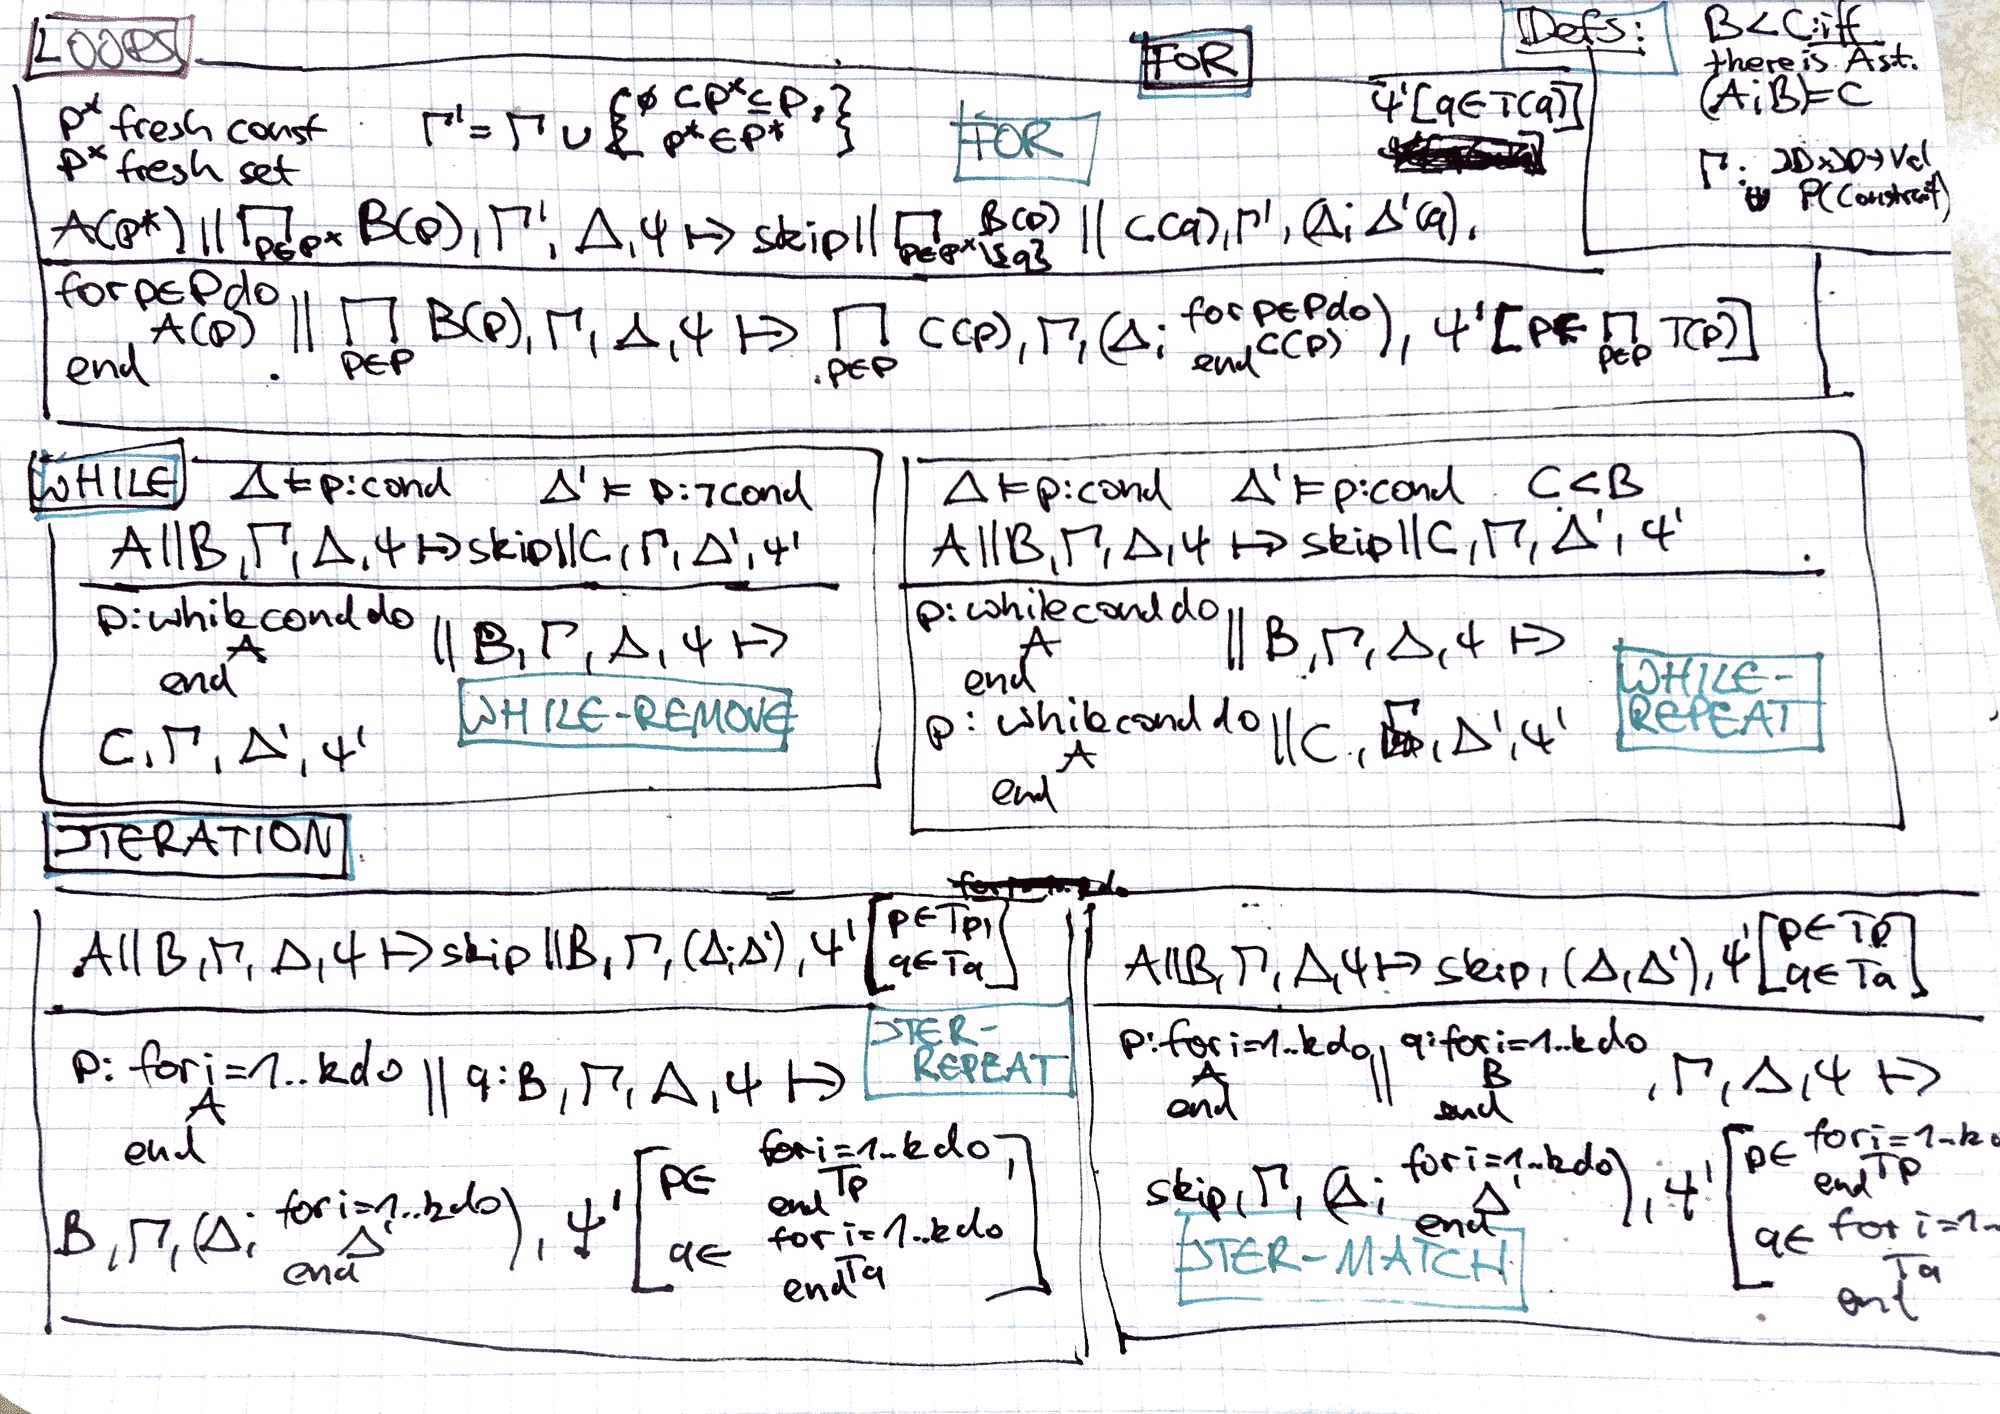 LOOPS
FOR
Defs:
B < C :iff
there is A st.
(A;B)=C
p* fresh const
P* fresh set
Γ' = Γ ∪ { ∅ ⊂ P* ⊆ P, p* ∈ P* }
FOR
Ψ'[q∈T(q)]
A(p*) || ∏ p∈P* B(p), Γ', Δ, Ψ ↦ skip || ∏ p∈P*\{q} B(p) || C(q), Γ', (Δ; Δ'(q),
for p∈P do
A(p)
end
|| ∏ p∈P B(p), Γ, Δ, Ψ ↦ ∏ p∈P C(p), Γ, (Δ; for p∈P do C(p) end), Ψ'[p∈ ∏ p∈P T(p)]
WHILE
Δ ⊨ p:cond Δ' ⊨ p:¬cond
A||B, Γ, Δ, Ψ ↦ skip||C, Γ, Δ', Ψ'
p: while cond do
A
end
|| B, Γ, Δ, Ψ ↦
WHILE-REMOVE
C, Γ, Δ', Ψ'
Δ ⊨ p:cond Δ' ⊨ p:cond C < B
A||B, Γ, Δ, Ψ ↦ skip||C, Γ, Δ', Ψ'
p: while cond do
A
end
|| B, Γ, Δ, Ψ ↦
WHILE-
REPEAT
p: while cond do
A
end
|| C, Γ, Δ', Ψ'
ITERATION
A||B, Γ, Δ, Ψ ↦ skip||B, Γ, (Δ;Δ'), Ψ' [p∈Tp, q∈Tq]
ITER-
REPEAT
p: for i=1..k do
A
end
|| q:B, Γ, Δ, Ψ ↦
B, Γ, (Δ; for i=1..k do Δ' end), Ψ' [p∈ for i=1..k do Tp end, q∈ for i=1..k do Tq end]
A||B, Γ, Δ, Ψ ↦ skip, (Δ,Δ'), Ψ' [p∈Tp q∈Tq]
p: for i=1..k do
A
end
|| q: for i=1..k do
B
end
, Γ, Δ, Ψ ↦
skip, Γ, (Δ; for i=1..k do Δ' end), Ψ' [p∈ for i=1..k do Tp end q∈ for i=1.. Tq end]
ITER-MATCH